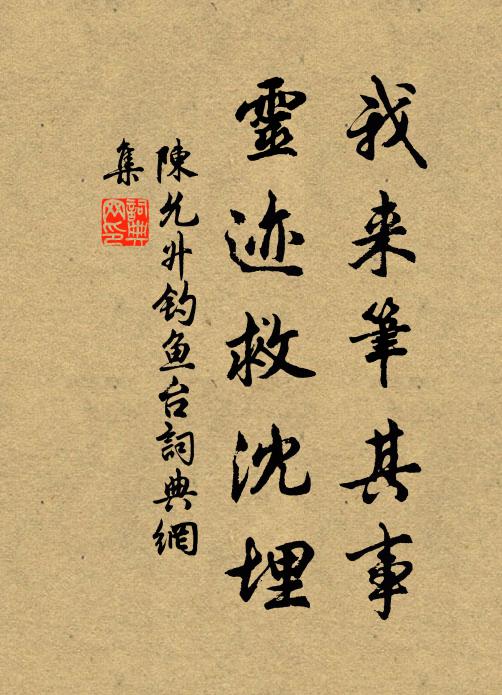 我来筆其事
靈迹救沈埋
陳允升钓鱼台詞典網
集
詞典網印